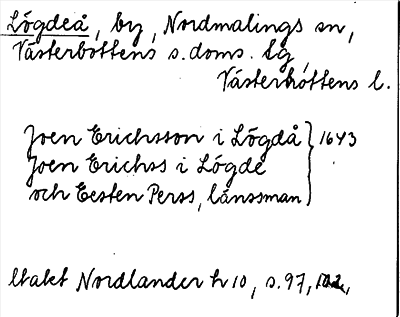 Lögdeå, by, Nordmalings sn,
Västerbottens s. doms. tg,
Västerbottens l.
Joen Erichsson i Lögdå } 1643
Joen Erichss i Lögde
och Eesten Perss, länssman
Utakt Nordlander h 10, s. 97, 102,